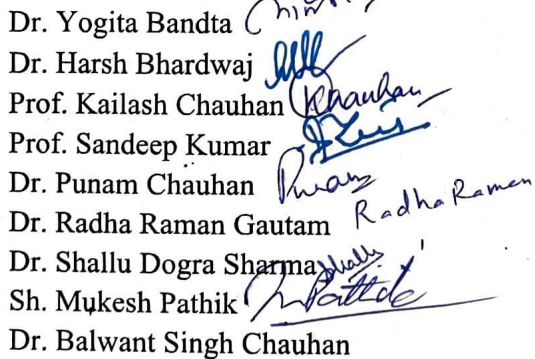 Dr. Yogita Bandta
Dr. Harsh Bhardwaj
Prof. Kailash Chauhan Chauhan
Prof. Sandeep Kumar
Dr. Punam Chauhan Punam
Dr. Radha Raman Gautam Radha Raman
Dr. Shallu Dogra Sharma Shallu
Sh. Mukesh Pathik
Dr. Balwant Singh Chauhan